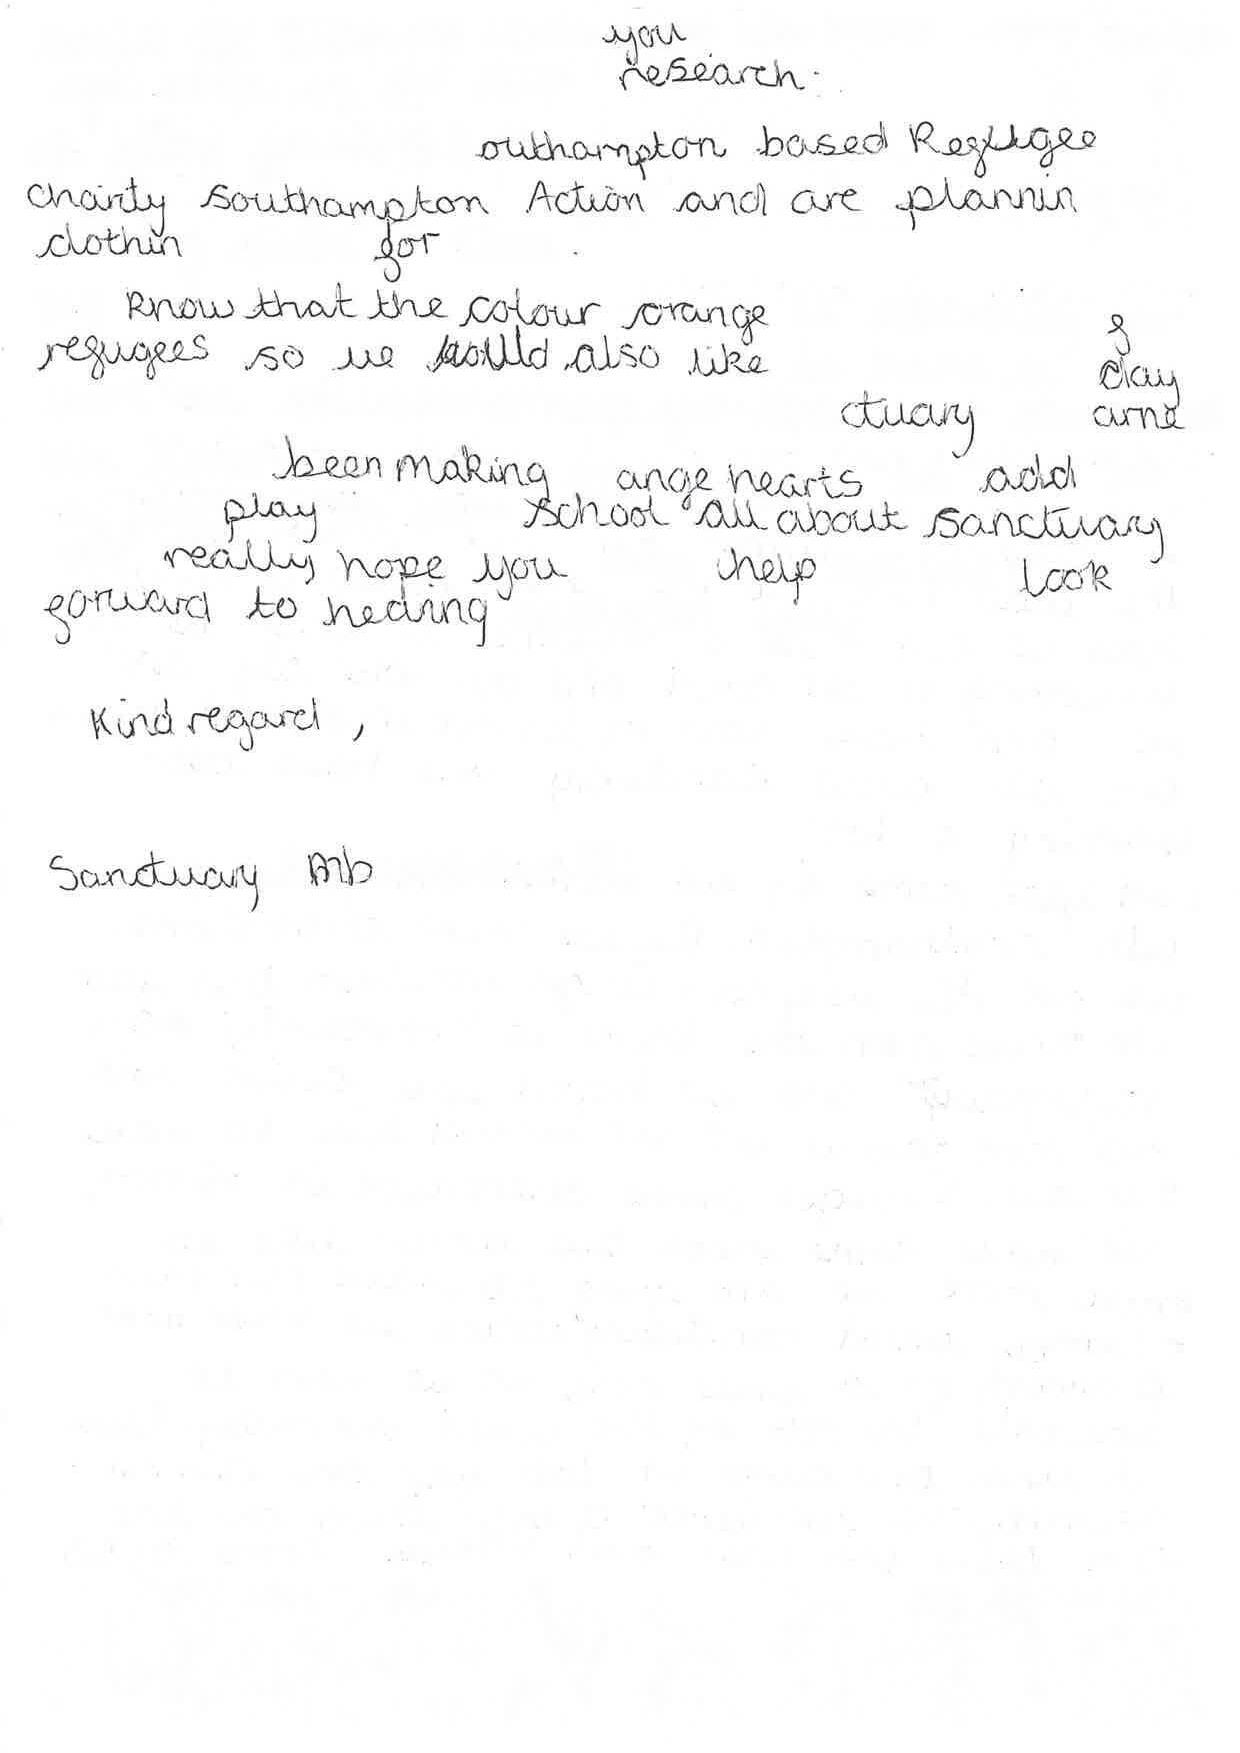 you
research.
outhampton based Refugee
chairty Southampton Action and are plannin
clothin for
know that the colour orange
refugees so we would also like
day
ctuary
been making ange hearts add
play school all about sanctuary
really hope you help look
forward to hearing
Kind regard,
Sanctuary